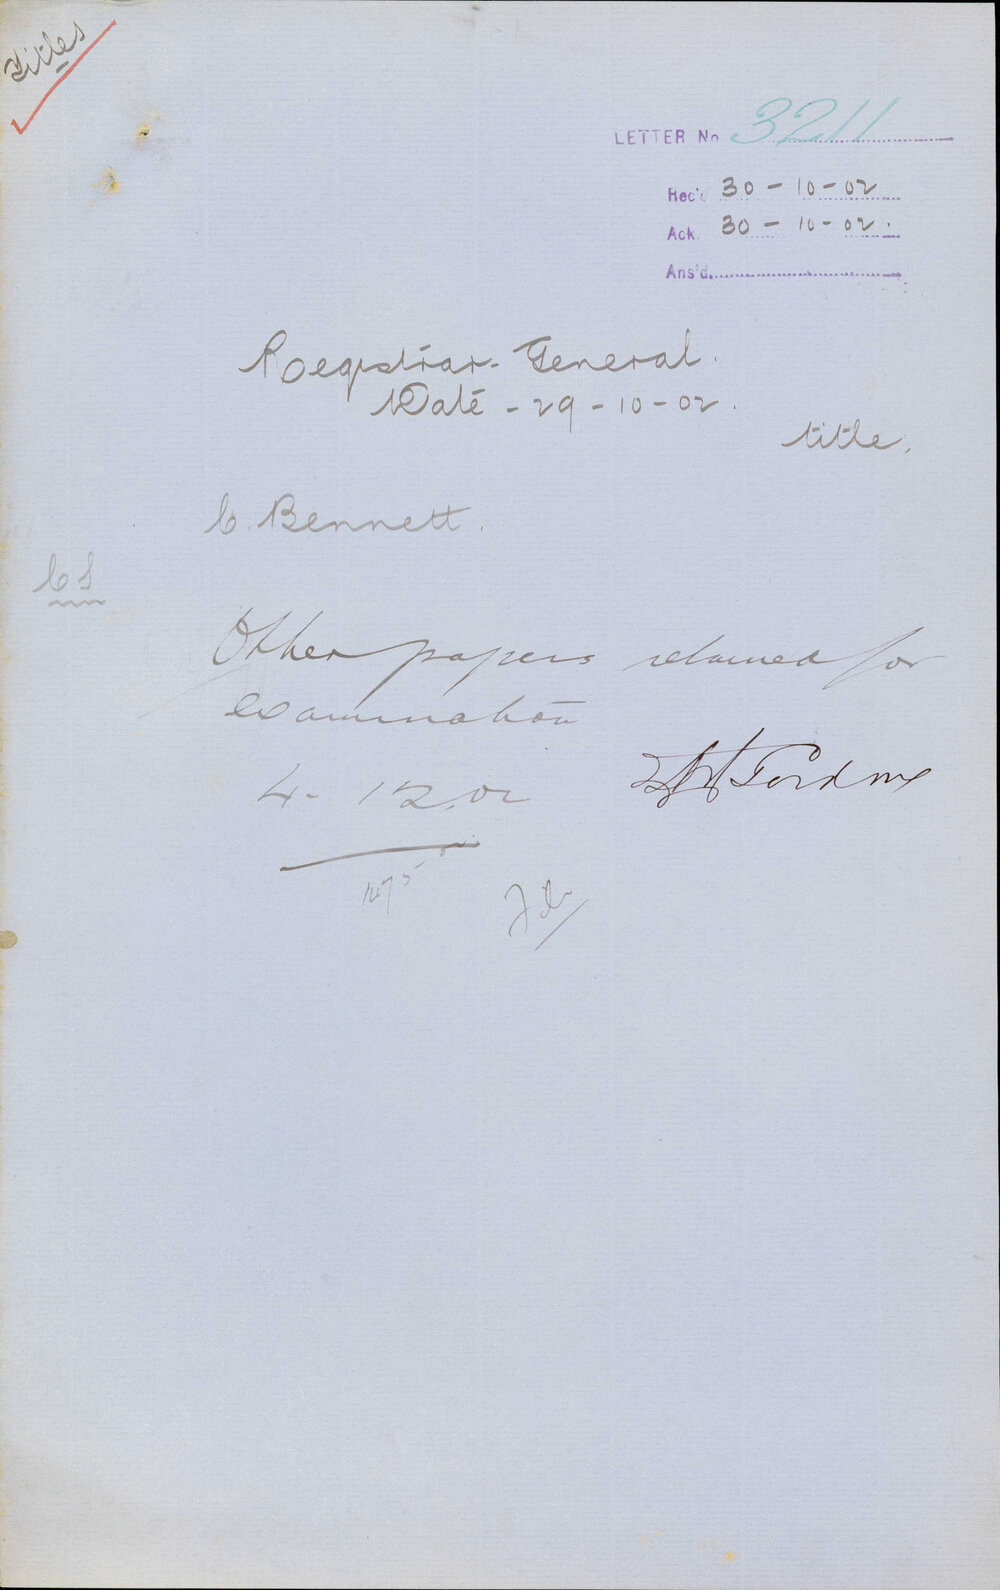 Titles
LETTER No 3211
Rec'd 30-10-02
Ack. 30-10-02.
Ans'd.
Registrar-General.
Date - 29-10-02.
title.
C. Bennett.
CS
Other papers retained for
examination
4-12.02